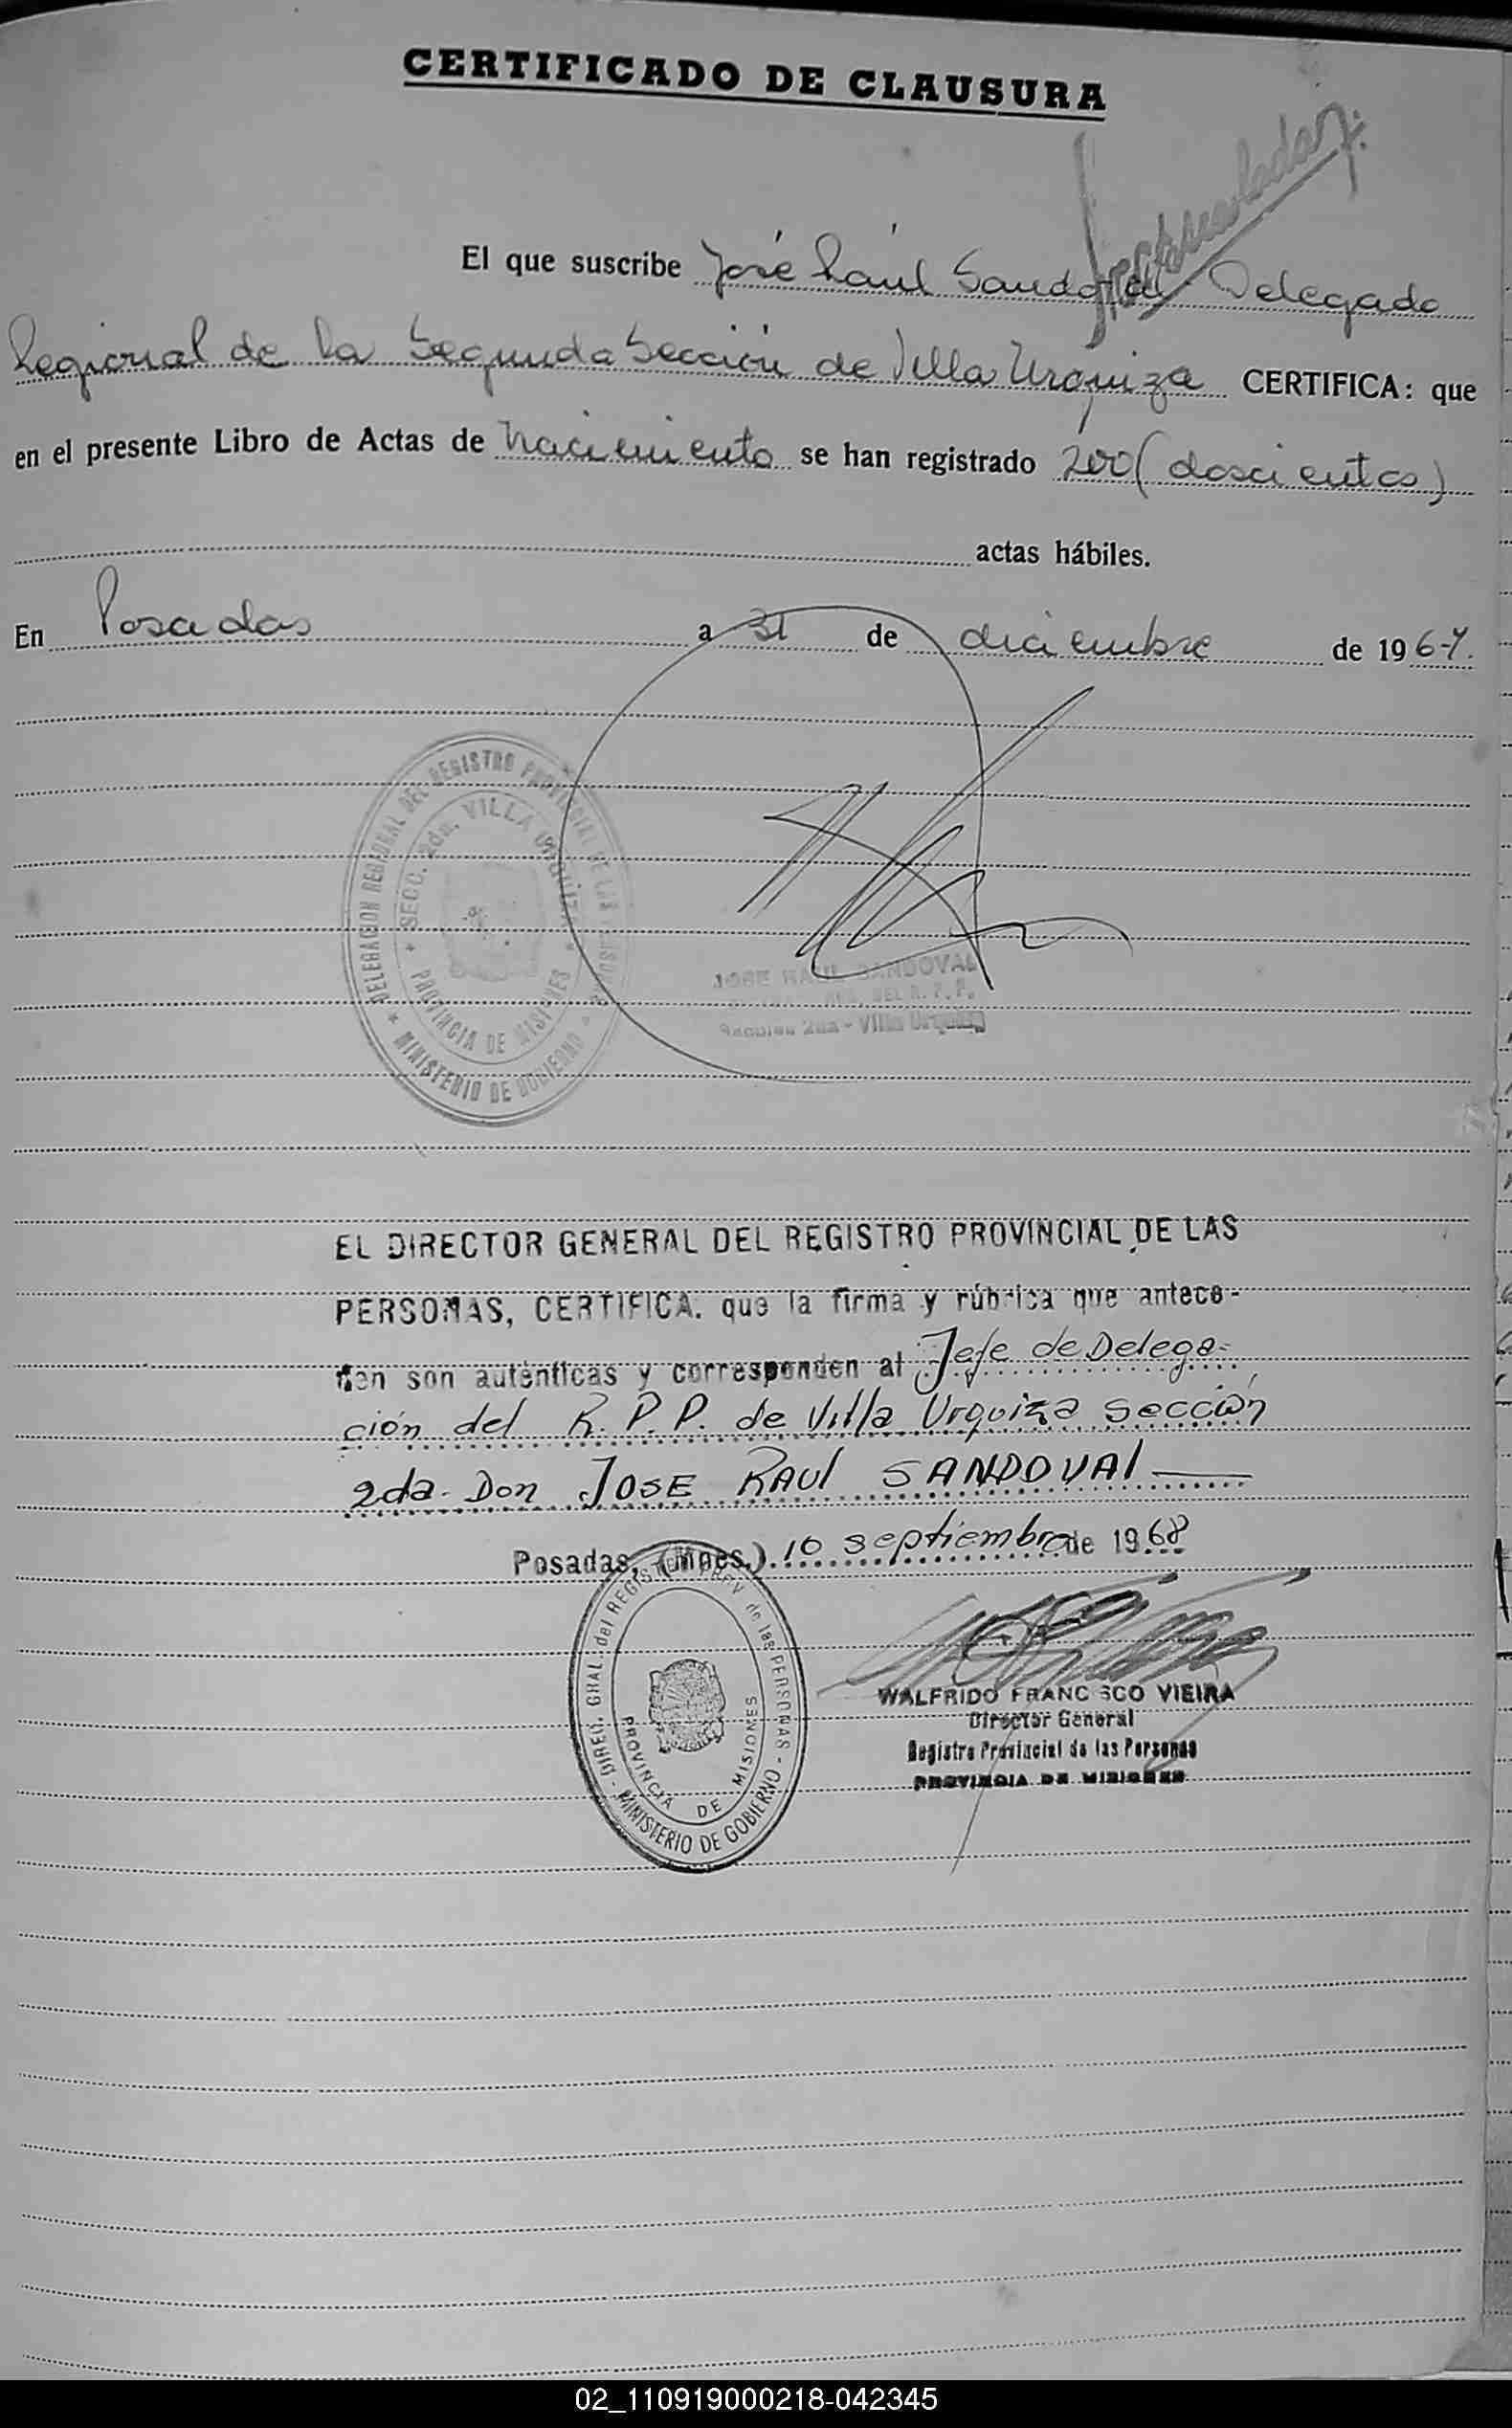 CERTIFICADO DE CLAUSURA
El que suscribe José Raúl Sandoval Delegado
Regional de la Segunda Sección de Villa Urquiza CERTIFICA: que
en el presente Libro de Actas de nacimiento se han registrado 200 (doscientos)
actas hábiles.
En Posadas a 31 de diciembre de 1967.
DELEGACION REGIONAL DEL REGISTRO PROVINCIAL DE LAS PERSONAS
SECC. 2da. VILLA URQUIZA
PROVINCIA DE MISIONES
MINISTERIO DE GOBIERNO
JOSE RAUL SANDOVAL
DEL R. P. P.
Sección 2da - Villa Urquiza
EL DIRECTOR GENERAL DEL REGISTRO PROVINCIAL DE LAS
PERSONAS, CERTIFICA. que la firma y rúbrica que antece-
den son auténticas y corresponden al Jefe de Delega-
ción del R. P. P. de Villa Urquiza sección
2da. Don JOSE RAUL SANDOVAL
Posadas, (Mnes.). 10 septiembre de 1968
DIREC. GRAL. del REGISTRO PROV. de las PERSONAS
PROVINCIA DE MISIONES
MINISTERIO DE GOBIERNO
WALFRIDO FRANCISCO VIEIRA
Director General
Registro Provincial de las Personas
PROVINCIA DE MISIONES
02_110919000218-042345